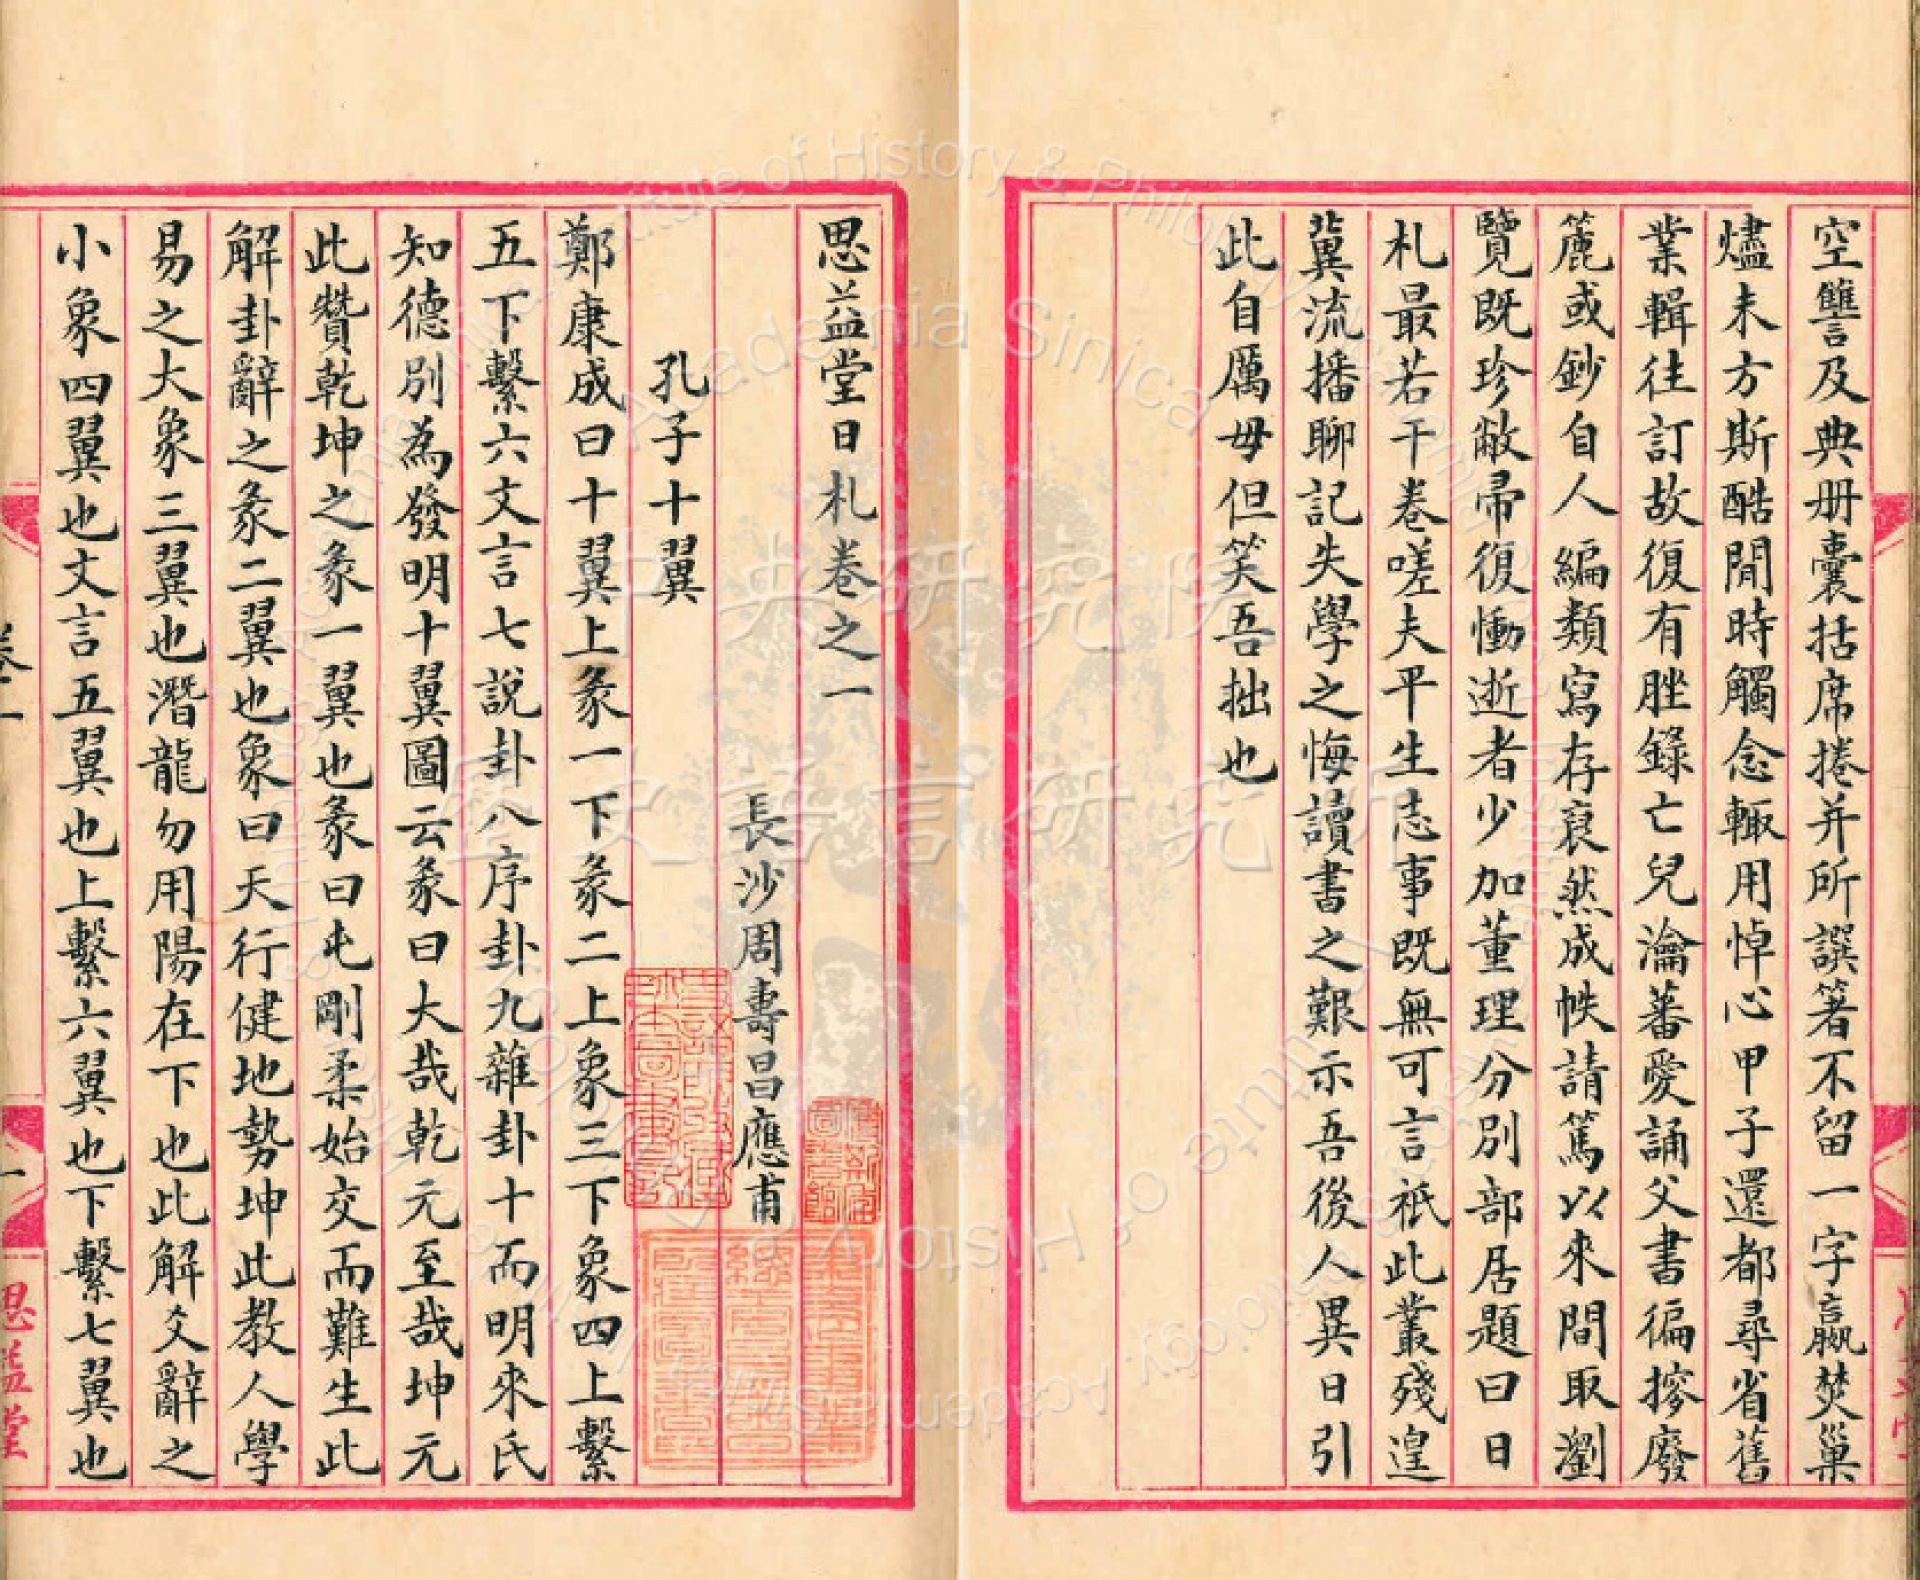 空讐及典册囊括席捲并所譔箸不留一字嬴焚巢
燼未方斯酷閒時觸念輒用悼心甲子還都尋省舊
業輯往訂故復有脞錄亡兒瀹蕃愛誦父書徧摉廢
簏或鈔自人編類寫存裒然成帙請篤以來間取瀏
覽既珍敝帚復慟逝者少加董理分別部居題曰日
札最若干卷嗟夫平生志事既無可言祇此叢殘遑
冀流播聊記失學之悔讀書之艱示吾後人異日引
此自厲毋但笑吾拙也
思益堂日札卷之一
長沙周壽昌應甫
孔子十翼
鄭康成曰十翼上彖一下彖二上象三下象四上繫
五下繫六文言七說卦八序卦九雜卦十而明來氏
知德別為發明十翼圖云彖曰大哉乾元至哉坤元
此贊乾坤之彖一翼也彖曰屯剛柔始交而難生此
解卦辭之彖二翼也象曰天行健地勢坤此教人學
易之大象三翼也潛龍勿用陽在下也此解爻辭之
小象四翼也文言五翼也上繫六翼也下繫七翼也
卷一
一
思益堂
中央研究院
歷史語言研究所
Institute of History & Philology, Academia Sinica